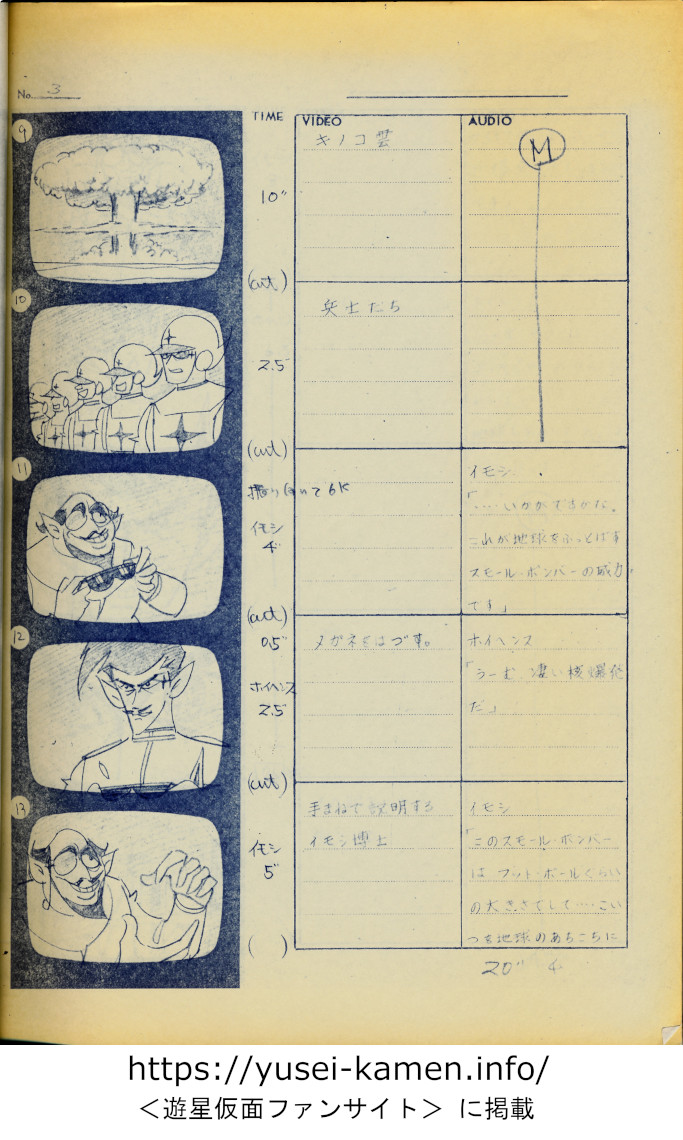 No. 3
TIME VIDEO AUDIO
9
キノコ雲
M
10"
(cut)
10
兵士たち
2.5"
(cut)
11
振り向いて6K
イモシ
4"
イモシ
「‥‥いかがですかな。
これが地球をふっとばす
スモール・ボンバーの威力
です」
(cut)
12
0.5"
メガネをはづす。
ホイヘンス
2.5"
ホイヘンス
「うーむ 凄い核爆発
だ」
(cut)
13
手まねで説明する
イモシ博士
イモシ
5"
イモシ
「このスモール・ボンバー
はフット・ボールくらい
の大きさでして‥‥こい
つを地球のあちこちに
( )
20"
https://yusei-kamen.info/
＜遊星仮面ファンサイト＞ に掲載